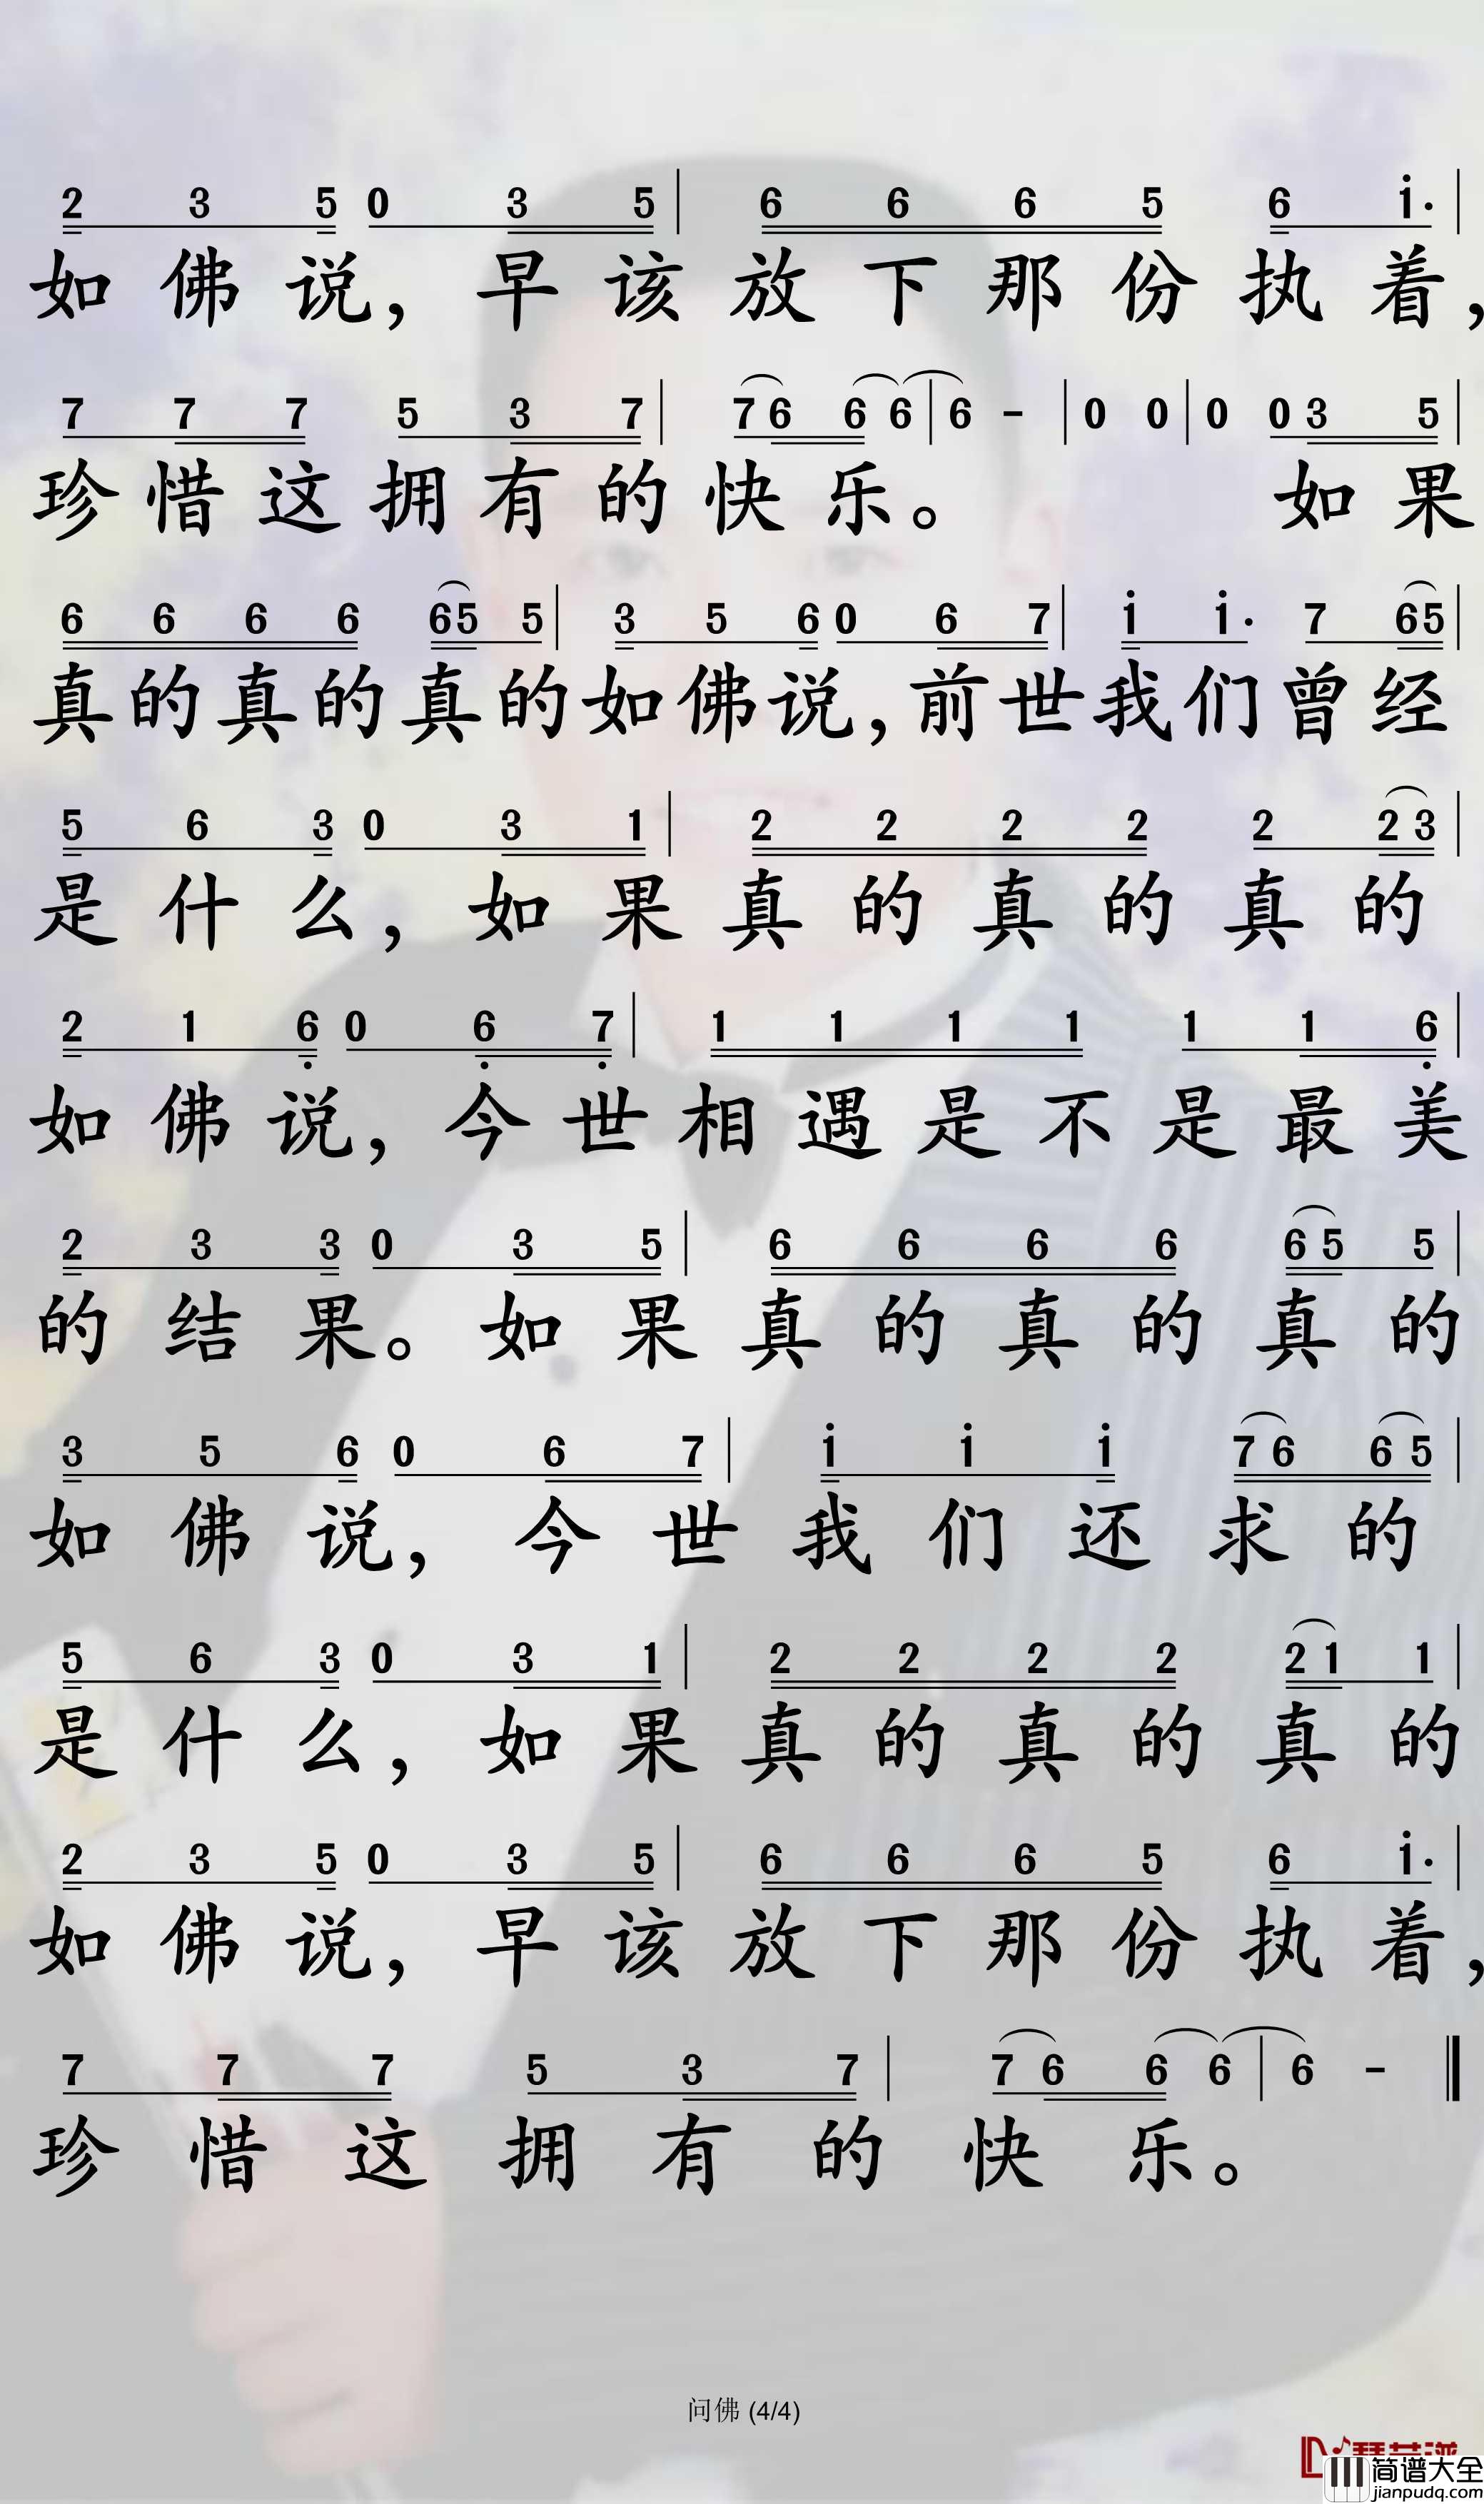 2 3 5 0 3 5 | 6 6 6 5 6 i· |
如佛说，早该放下那份执着，
7 7 7 5 3 7 | 7 6 6 6 | 6 - | 0 0 | 0 0 3 5 |
珍惜这拥有的快乐。 如果
6 6 6 6 6 5 5 | 3 5 6 0 6 7 | i i· 7 6 5 |
真的真的真的如佛说，前世我们曾经
5 6 3 0 3 1 | 2 2 2 2 2 2 3 |
是什么，如果真的真的真的
2 1 6 0 6 7 | 1 1 1 1 1 1 6 |
如佛说，今世相遇是不是最美
2 3 3 0 3 5 | 6 6 6 6 6 5 5 |
的结果。如果真的真的真的
3 5 6 0 6 7 | i i i 7 6 6 5 |
如佛说，今世我们还求的
5 6 3 0 3 1 | 2 2 2 2 2 1 1 |
是什么，如果真的真的真的
2 3 5 0 3 5 | 6 6 6 5 6 i· |
如佛说，早该放下那份执着，
7 7 7 5 3 7 | 7 6 6 6 | 6 - ‖
珍惜这拥有的快乐。
问佛 (4/4)
简谱大全
jianpudq.com